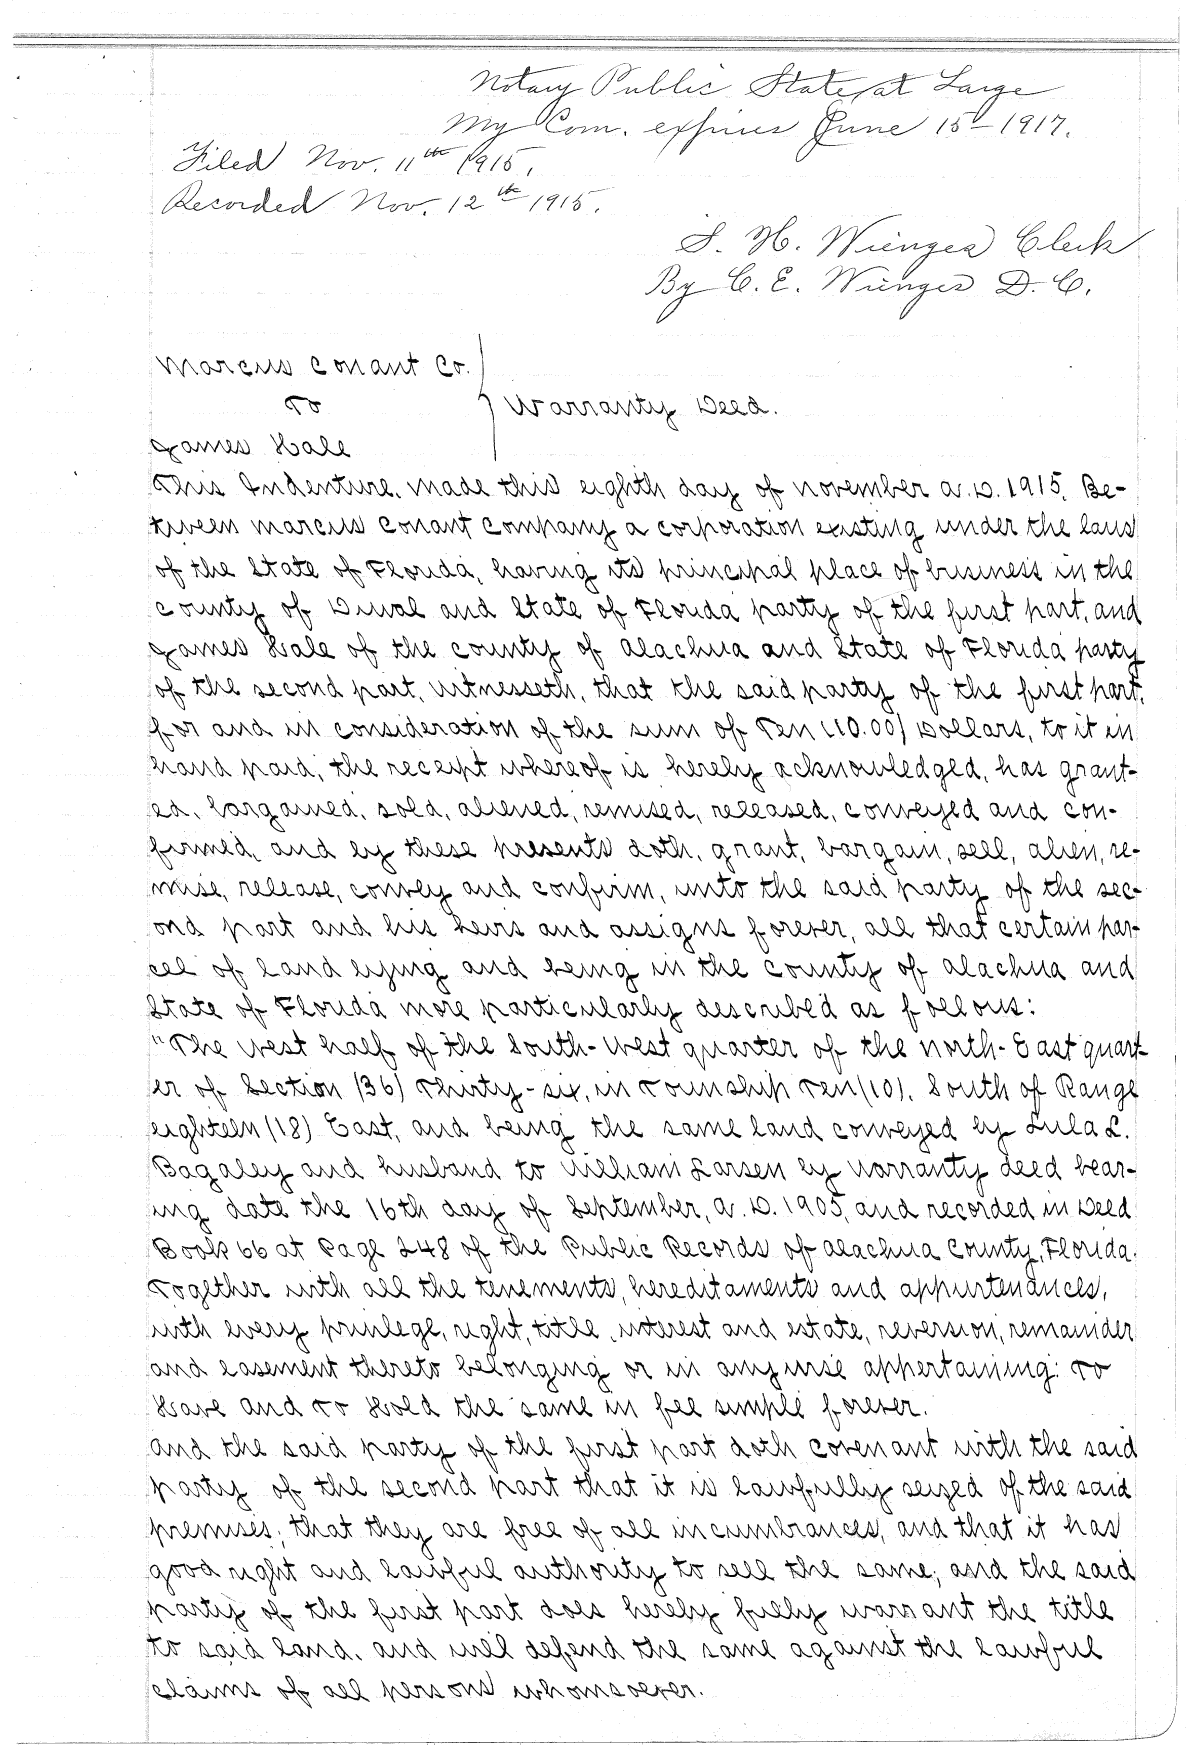 Notary Public State at Large
My Com. expires June 15-1917.
Filed Nov. 11th 1915.
Recorded Nov. 12th 1915.
S. H. Wienges Clerk
By C. E. Wienges D. C.
Marcus Conant Co.
To
Warranty Deed.
James Hale
This Indenture, made this eighth day of november a.D. 1915, Be-
tween marcus Conant Company a corporation existing under the laws
of the State of Florida, having its principal place of business in the
County of Duval and State of Florida party of the first part, and
James Hale of the county of alachua and State of Florida party
of the second part, witnesseth, that the said party of the first part,
for and in consideration of the sum of Ten (10.00) Dollars, to it in
hand paid, the receipt whereof is hereby acknowledged, has grant-
ed, bargained, sold, aliened, remised, released, conveyed and con-
firmed, and by these presents doth, grant, bargain, sell, alien, re-
mise, release, convey and confirm, unto the said party of the sec-
ond part and his heirs and assigns forever, all that certain par-
cel of land lying and being in the county of alachua and
State of Florida more particularly described as follows:
"The west half of the South-West quarter of the north-East quart-
er of Section (36) Thirty-six, in Township Ten (10), South of Range
eighteen (18) East, and being the same land conveyed by Lula L.
Bagaley and husband to William Larsen by warranty deed bear-
ing date the 16th day of September, a.D. 1905, and recorded in Deed
Book 66 at Page 248 of the Public Records of alachua County, Florida.
Together with all the tenements, hereditaments and appurtenances,
with every privilege, right, title, interest and estate, reversion, remainder
and easement thereto belonging or in anywise appertaining: To
Have and To Hold the same in fee simple forever.
and the said party of the first part doth covenant with the said
party of the second part that it is lawfully seized of the said
premises, that they are free of all incumbrances, and that it has
good right and lawful authority to sell the same; and the said
party of the first part does hereby fully warrant the title
to said land, and will defend the same against the lawful
claims of all persons whomsoever.